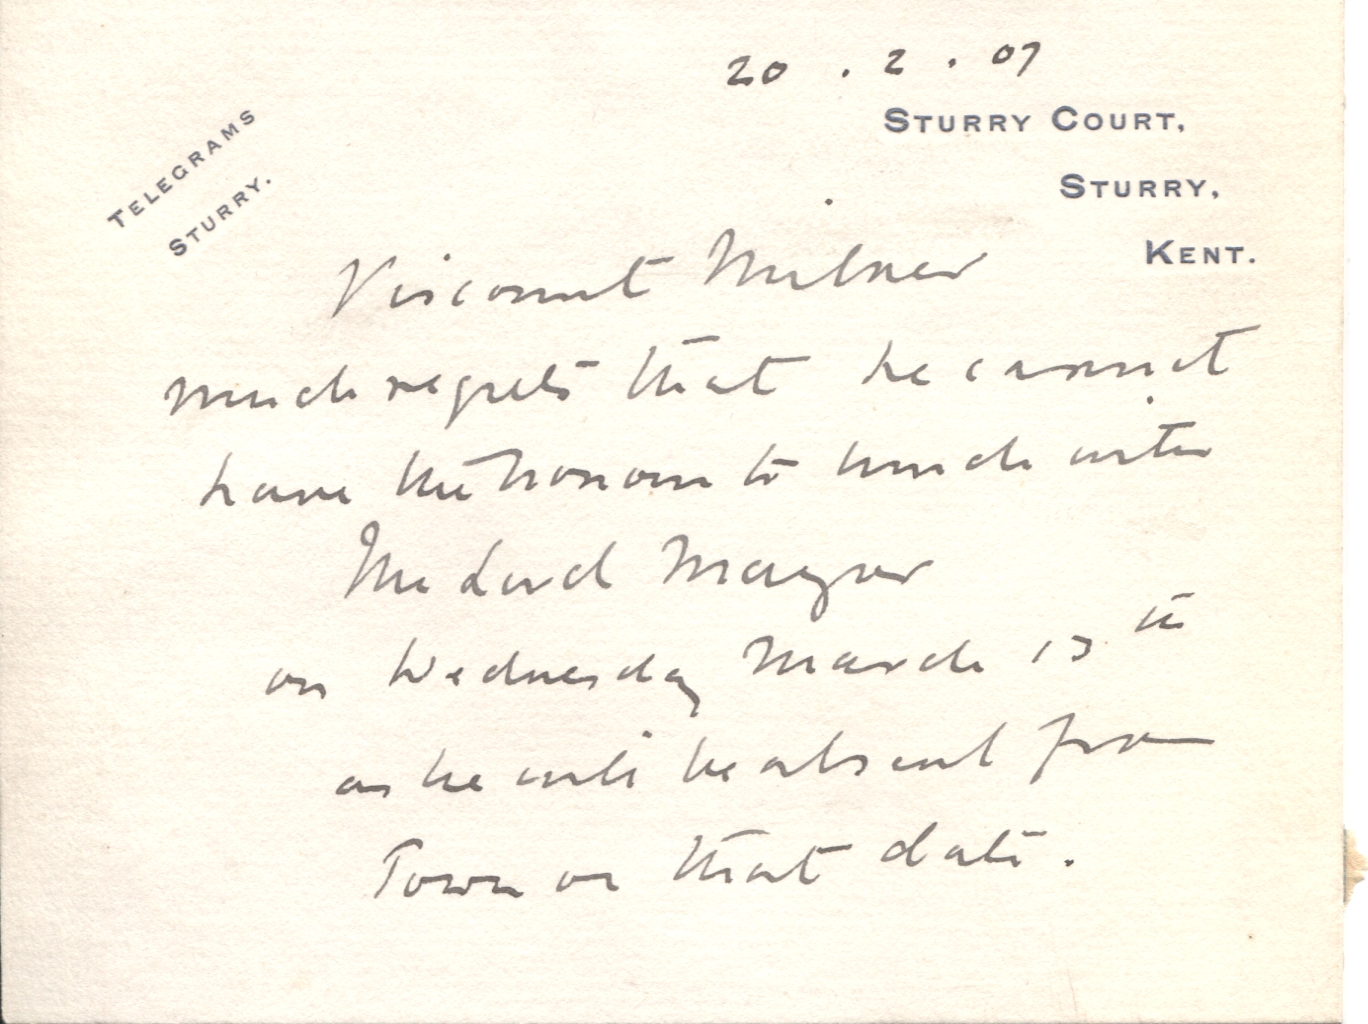 20 . 2 . 07
TELEGRAMS
STURRY.
STURRY COURT,
STURRY,
KENT.
Viscount Milner
much regrets that he cannot
have the honour to lunch with
The Lord Mayor
on Wednesday March 13th
as he will be absent from
Town on that date.